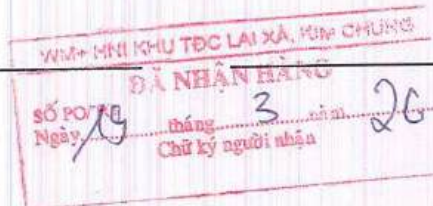 WM+ HNI KHU TĐC LAI XÁ, KIM CHUNG
ĐÃ NHẬN HÀNG
SỐ PO/
Ngày 19 tháng 3 năm 26
Chữ ký người nhận